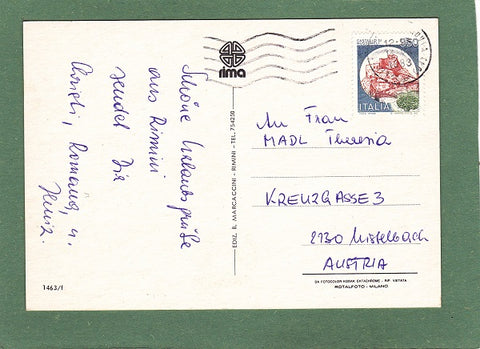 rima
Schöne Urlaubsgrüße
aus Rimini
sendet Die
Christl, Romana, u.
Heinz.
1463/f
EDIZ. B. MARCACCINI - RIMINI - TEL. 754250
950
ITALIA
An Frau
MADL Theresia
KREUZGASSE 3
2130 Mistelbach
AUSTRIA
DA FOTOCOLOR KODAK EKTACHROME - RIP. VIETATA
ROTALFOTO - MILANO